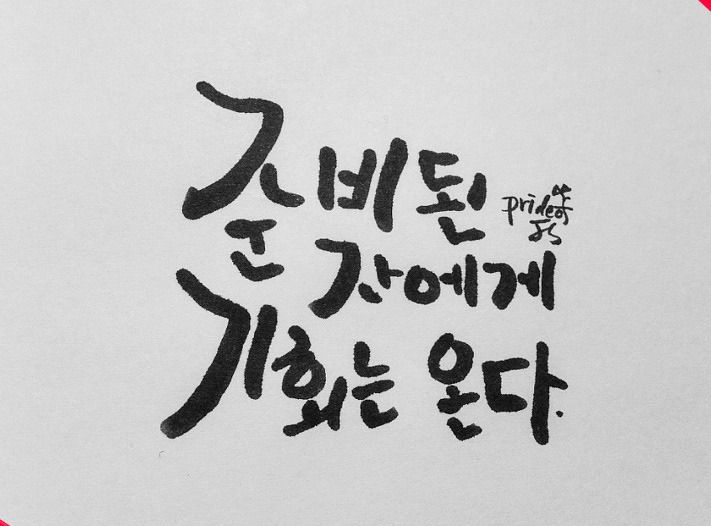 준비된
자에게
기회는 온다.
pride of
JS